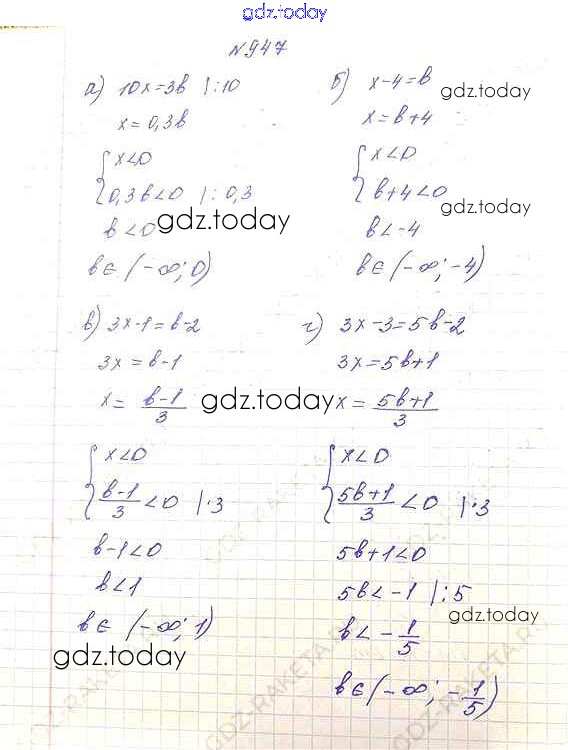 gdz.today
№947
а) 10x=3в |:10
x=0,3в
{x<0
0,3в<0 |:0,3
в<0
в∈(-∞;0)
б) x-4=в
x=в+4
{x<0
в+4<0
в<-4
в∈(-∞;-4)
gdz.today
gdz.today
gdz.today
в) 3x-1=в-2
3x=в-1
x=\frac{в-1}{3}
{x<0
\frac{в-1}{3}<0 |·3
в-1<0
в<1
в∈(-∞;1)
г) 3x-3=5в-2
3x=5в+1
x=\frac{5в+1}{3}
{x<0
\frac{5в+1}{3}<0 |·3
5в+1<0
5в<-1 |:5
в<-\frac{1}{5}
в∈(-∞;-\frac{1}{5})
gdz.today
gdz.today
gdz.today
GDZ-RAKETA.RU